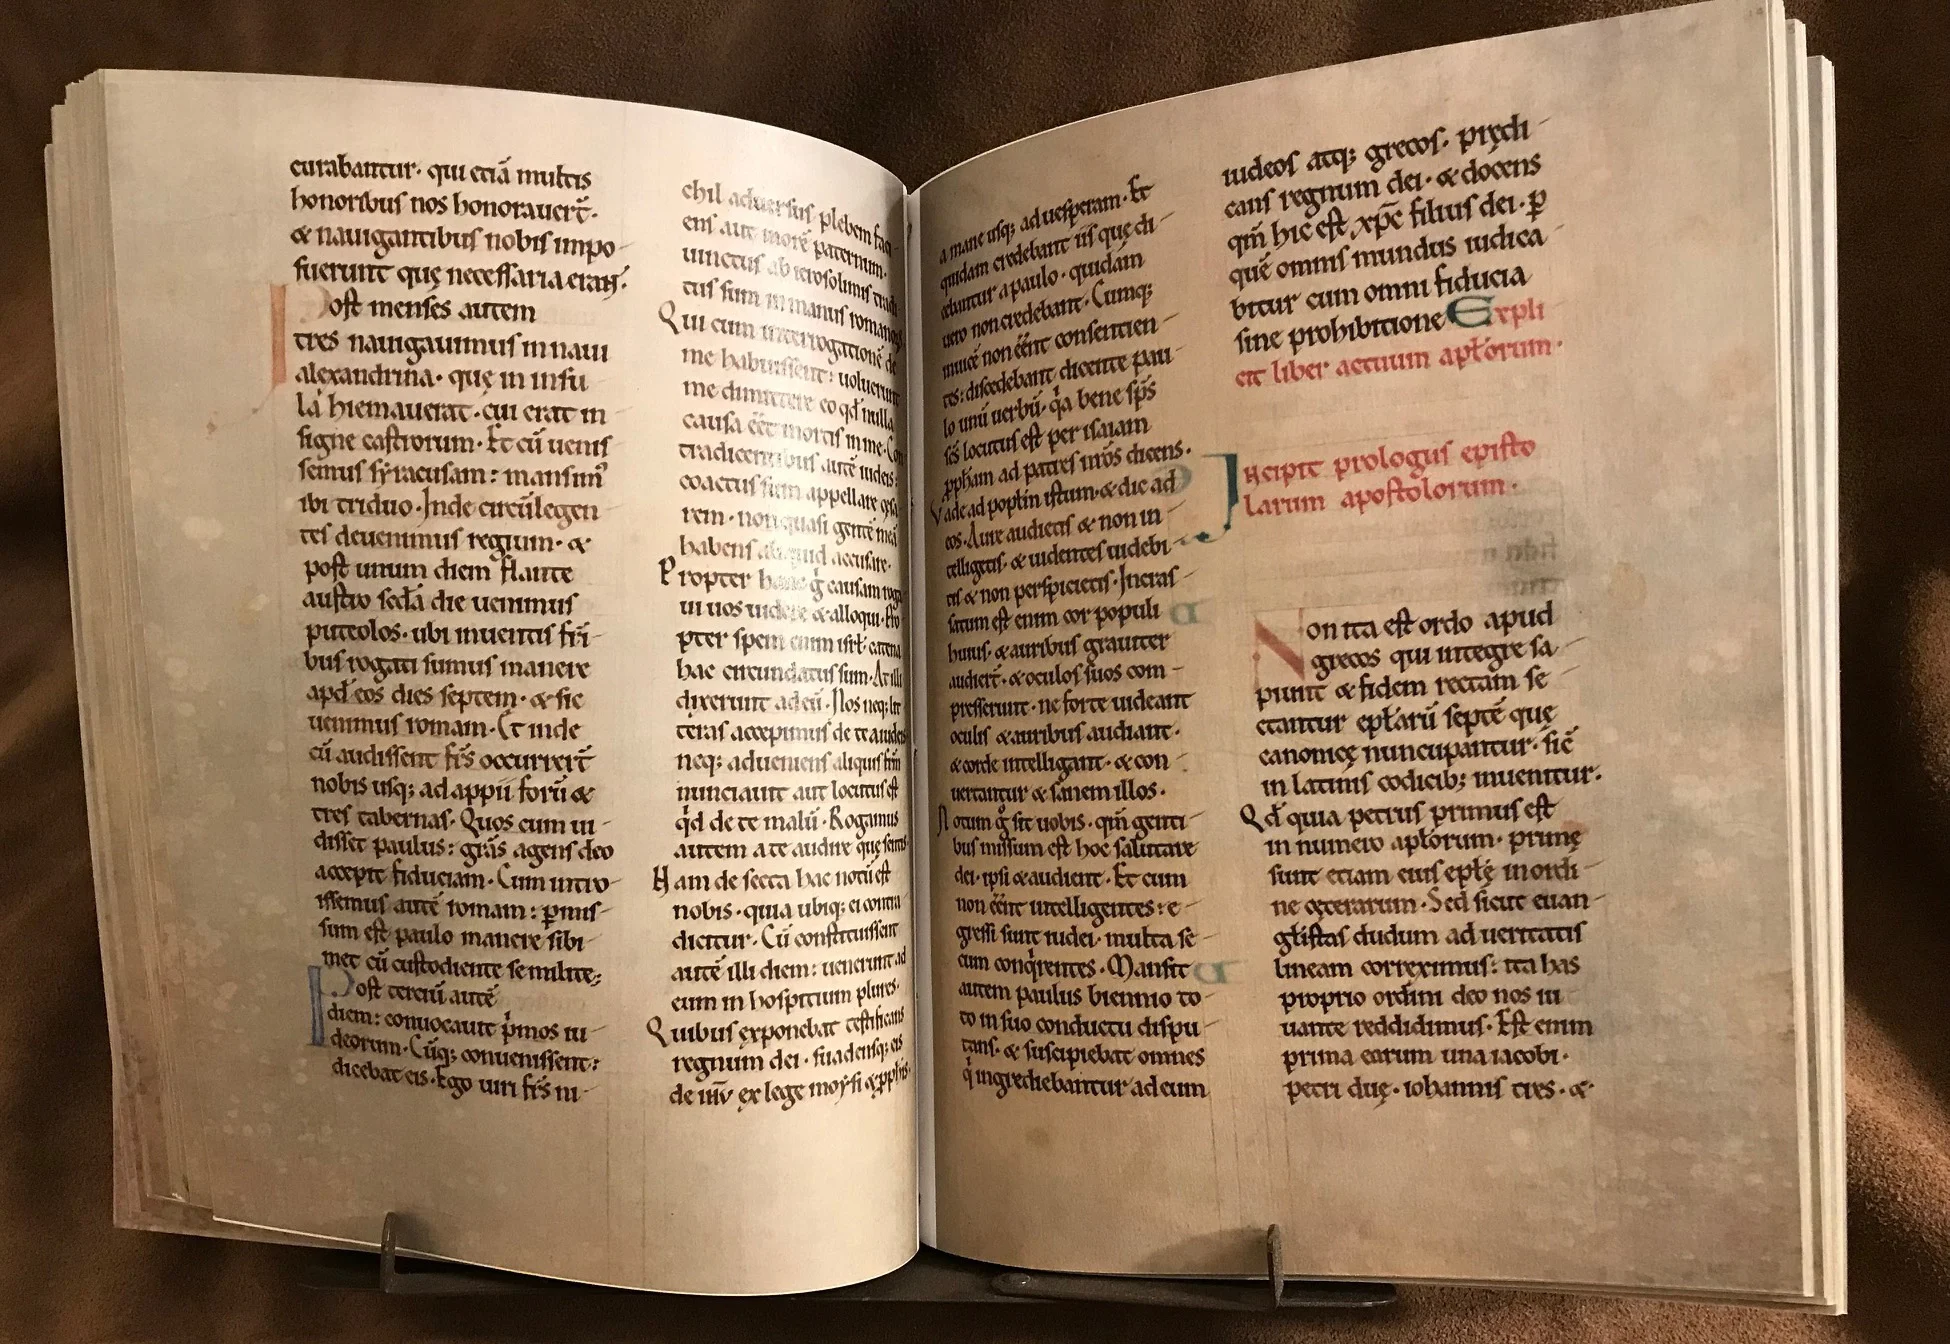 curabantur· qui etiā multis
honoribus nos honorauer̄t·
& nauigantibus nobis impo-
suerunt quę necessaria erant·
Post menses autem
tres nauigauimus in naui
alexandrina· quę in insu-
la hiemauerat· cui erat in-
signe castrorum· Et cū uenis-
semus syracusam: mansim᷒
ibi triduo· Inde circūlegen-
tes deuenimus regium· &
post unum diem flante
austro sed̄a die uenimus
puteolos· ubi inuentis fr̄i-
bus rogati sumus manere
apd̄ eos dies septem· & sic
uenimus romam· Et inde
cū audissent fr̄s occurrer̄t
nobis usq; ad appii forū &
tres tabernas· Quos cum ui-
disset paulus: gr̄as agens deo
accepit fiduciam· Cum intro-
issemus autē romam: p̱mis-
sum est paulo manere sibi-
met cū custodiente se milite;
Post terciū autē
diem: conuocauit p̄mos iu-
deorum· Cūq; conuenissent:
dicebat eis· Ego uiri fr̄s ni-
chil aduersus plebem faci-
ens aut morē paternum·
uinctus ab ierosolimis tradi
tus sum in manus romanoꝝ
Qui cum interrogationē de
me habuissent: uoluerunt
me dimittere eo qd̄ nulla
causa eēt mortis in me· Con
tradicentibus autē iudeis:
coactus sum appellare cęsa
rem· non quasi gentē meā
habens aliquid accusare·
Propter hanc g̊ causam roga
ui uos uidere & alloqui· Pro
pter spem enim isrł· catena
hac circundatus sum· At illi
dixerunt ad eū· Nos neq; lit
teras accepimus de te a iudea
neq; adueniens aliquis fr̄m
nunciauit aut locutus est
qd̄ de te malū· Rogamus
autem a te audire quę sentis
Nam de secta hac notū est
nobis· quia ubiq; ei contra
dicitur· Cū constituissent
autē illi diem: uenerunt ad
eum in hospitium plures·
Quibus exponebat testificans
regnum dei· suadensq; eis
de ih̄u ex lege moysi & pp̄his·
a mane usq; ad uesperam· Et
quidam credebant iis quę di-
cebantur a paulo· quidam
uero non credebant· Cumq;
inuicē non eēnt consentien-
tes: discedebant dicente pau-
lo unū uerbū· qa bene sp̄s
sc̄s locutus est per isaiam
pp̄ham ad patres nr̄os dicens·
Vade ad popłm istum· & dic ad
eos· Aure audietis & non in-
telligetis· & uidentes uidebi-
tis & non perspicietis· Incras-
satum est enim cor populi
huius· & auribus grauiter
audier̄t· & oculos suos com-
presserunt· ne forte uideant
oculis & auribus audiant·
& corde intelligant· & con-
uertantur & sanem illos·
Notum g̊ sit uobis· qm̄ genti-
bus missum est hoc salutare
dei· ipsi & audient· Et cum
non eēnt intelligentes: e-
gressi sunt iudei· multa se-
cum conqrentes· Mansit
autem paulus biennio to-
to in suo conductu dispu-
tans· & suscipiebat omnes
q ingrediebantur ad eum
iudeos atq; grecos· prędi-
cans regnum dei· & docens
qm̄ hic est xp̄c filius dei· p̱
quē omnis mundus iudica-
bitur cum omni fiducia
sine prohibitione Expli
cit liber actuum apłorum·
Incipit prologus episto
larum apostolorum·
Non ita est ordo apud
grecos qui integre sa-
piunt & fidem rectam se-
ctantur epłarū septē quę
canonicę nuncupantur· sic̄
in latinis codicib; inuenitur·
Qd̄ quia petrus primus est
in numero apłorum· primę
sunt etiam eius epłę in ordi-
ne ceterarum· Sed sicut euan-
głistas dudum ad ueritatis
lineam correximus: ita has
proprio ordini deo nos iu-
uante reddidimus· Est enim
prima earum una iacobi·
petri duę· iohannis tres· &